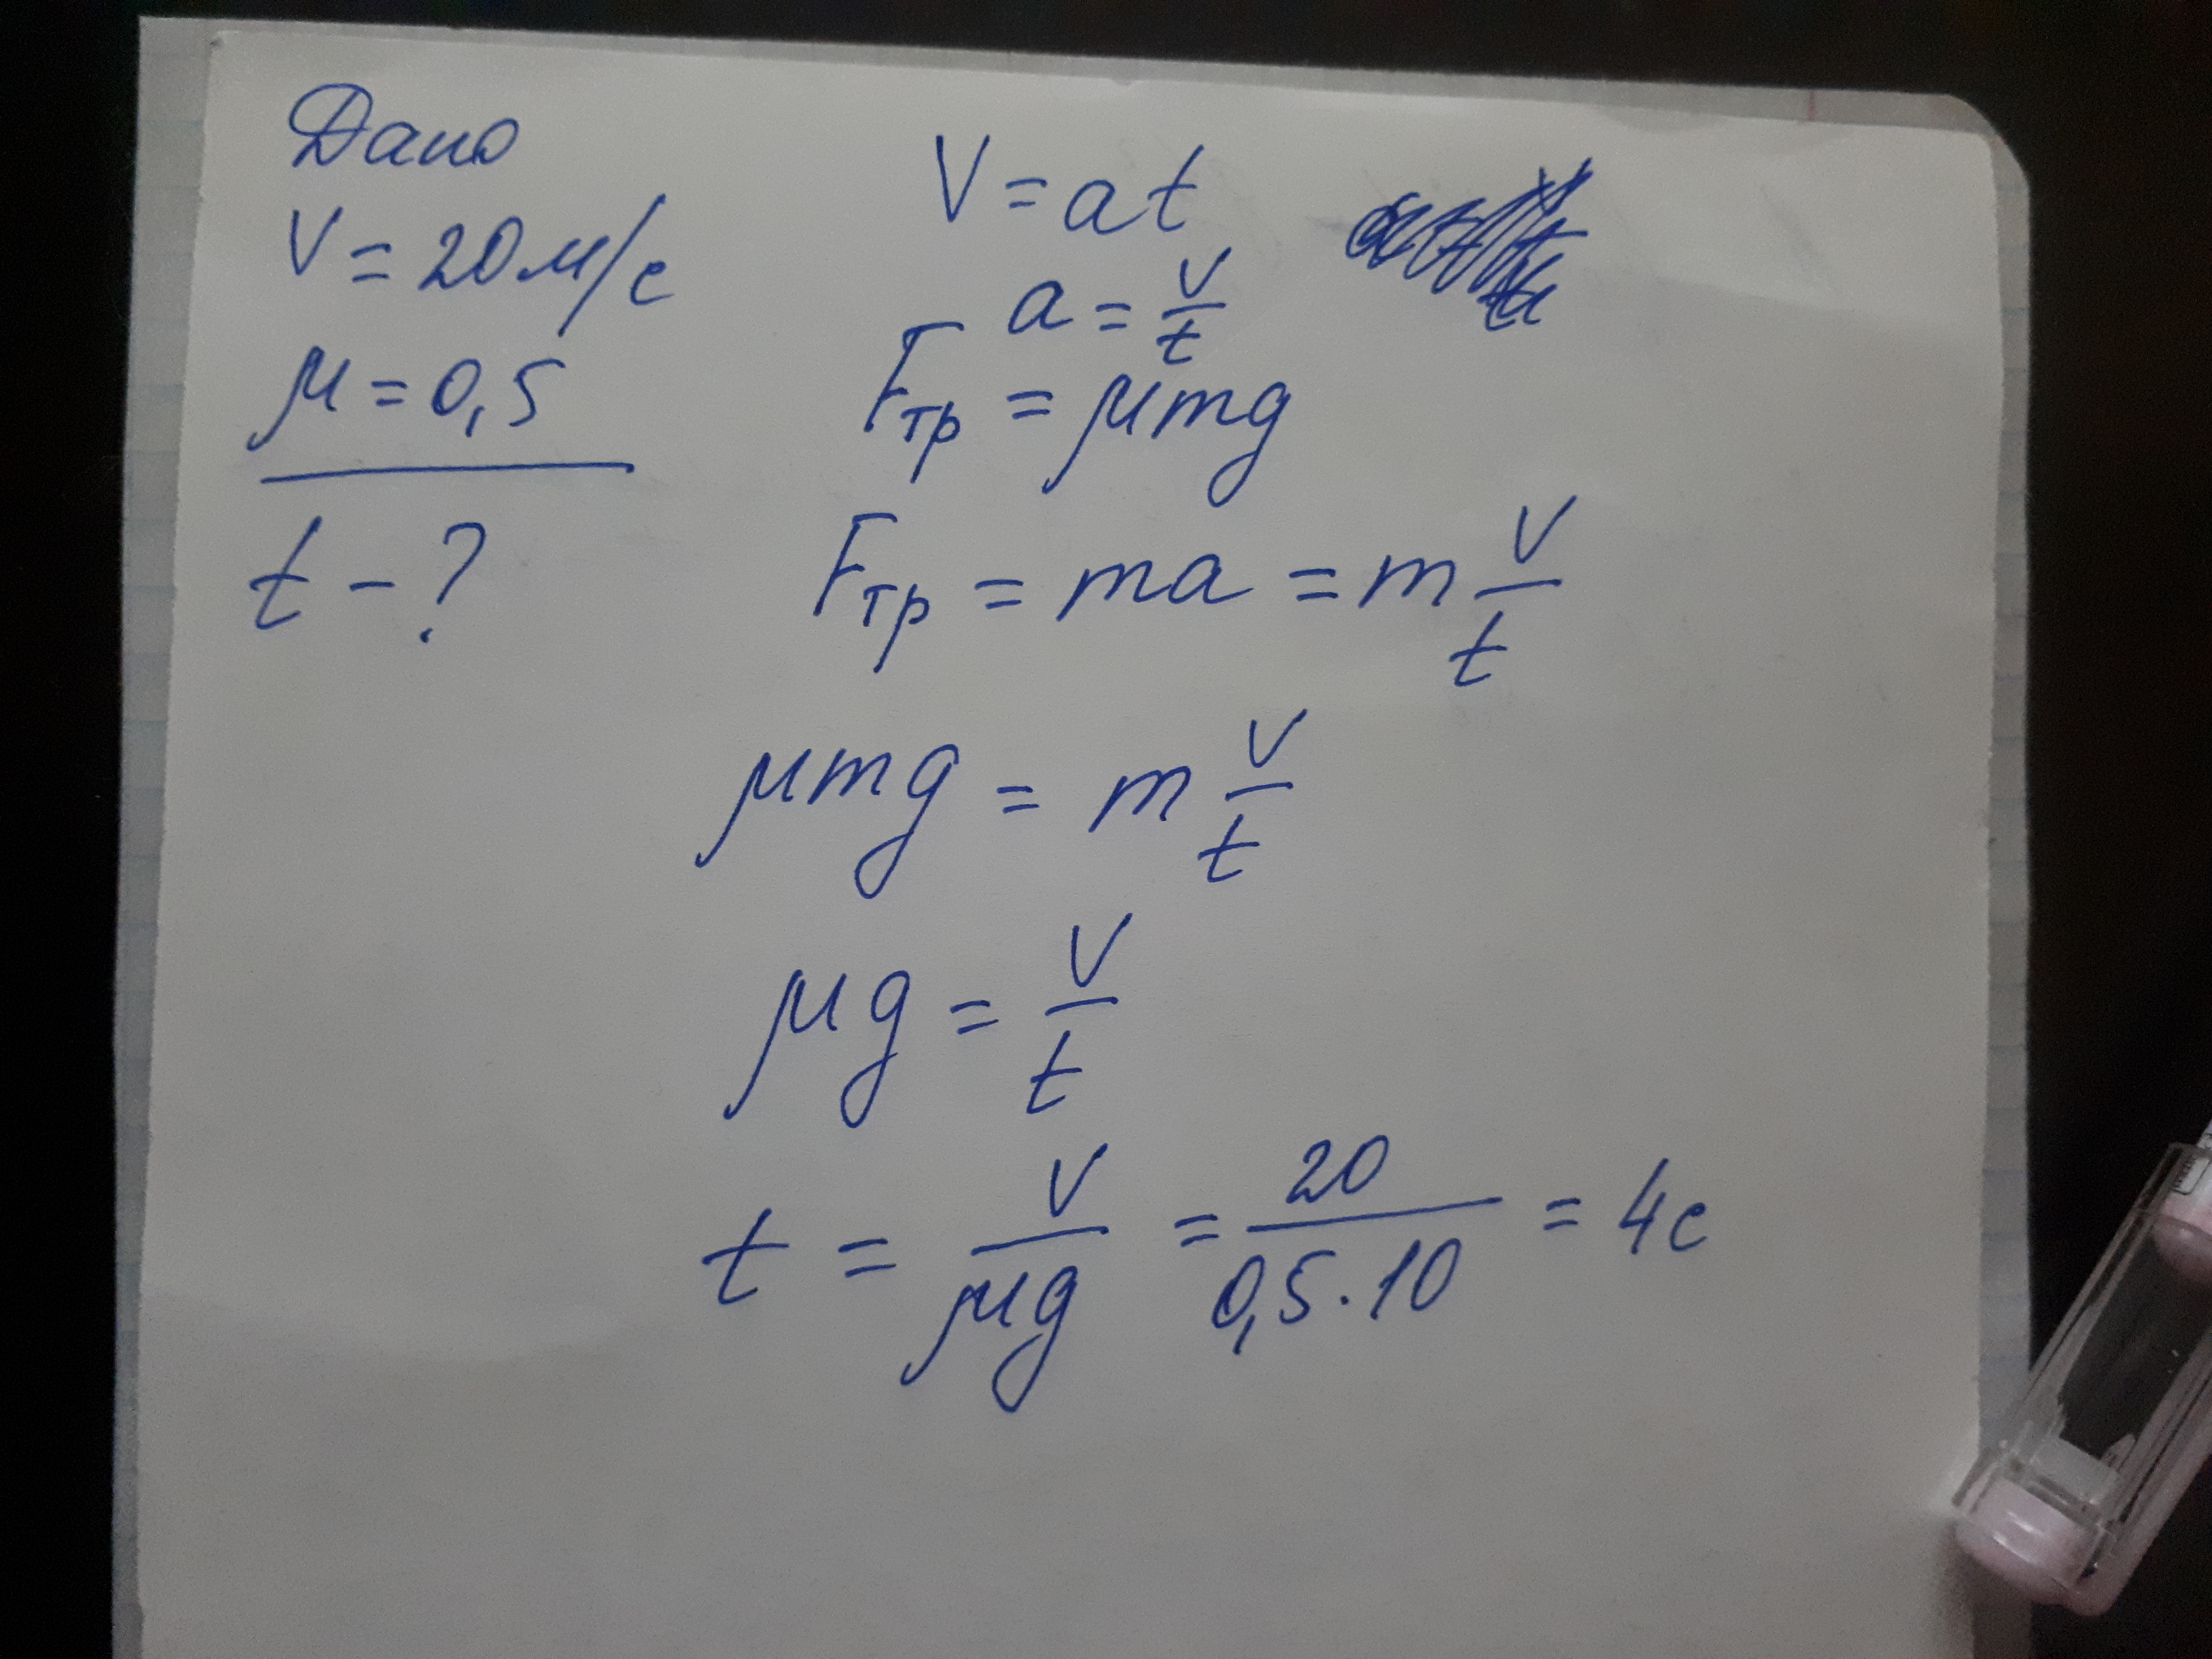 Дано
V = 20 м/с
μ = 0,5
t - ?
V = at
a = v/t
Fтр = μmg
Fтр = ma = m v/t
μmg = m v/t
μg = v/t
t = v/μg = 20/0,5·10 = 4с